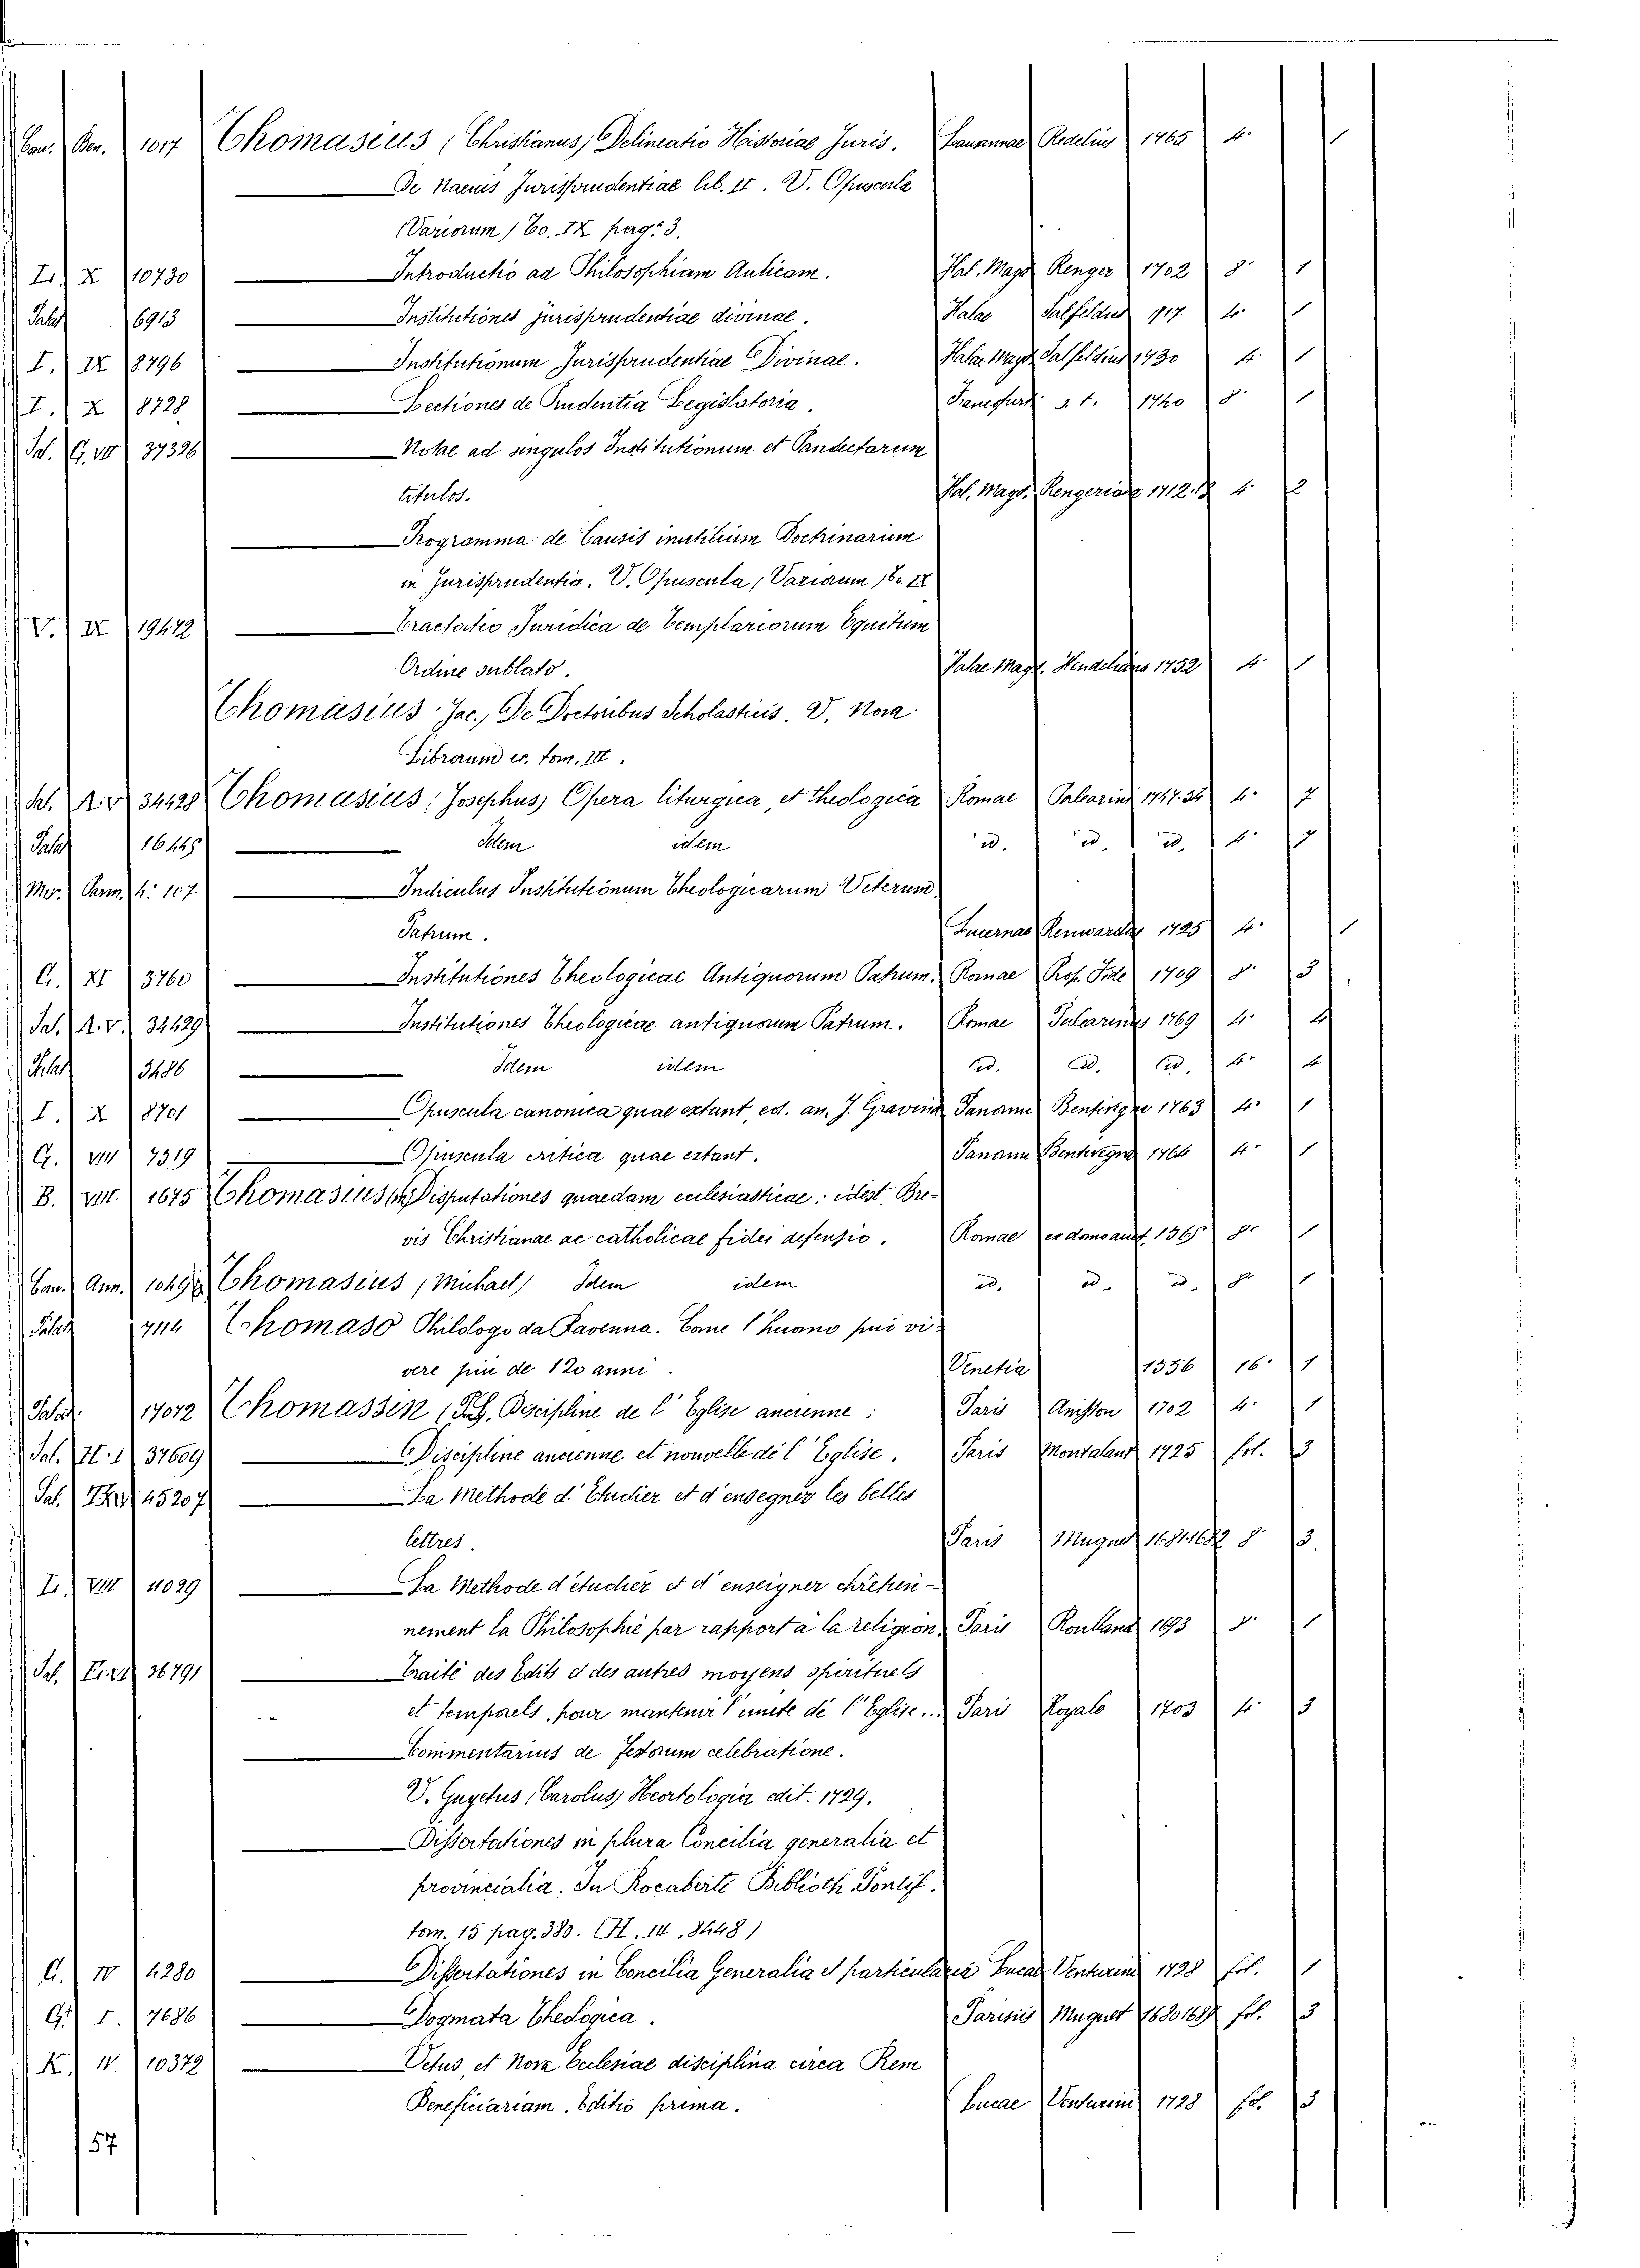 Can. Ben. 1017 Thomasius (Christianus) Delineatio Historiae Juris. Lausannae Redelius 1765 4. 1
De Naevis Jurisprudentiae lib. II. V. Opuscula
(Variorum) To. IX pag. 3.
I. X 10730 Introductio ad Philosophiam Aulicam. Hal. Magd. Renger 1702 8. 1
Salas 6913 Institutiones jurisprudentiae divinae. Halae Salfeldus 1717 4. 1
I. IX 8796 Institutionum Jurisprudentiae Divinae. Halae Magd. Salfeldius 1730 4. 1
I. X 8728 Lectiones de Prudentia Legislatoria. Francofurti s. t. 1740 8. 1
Sal. G. VII 37326 Notae ad singulos Institutionum et Pandectarum
titulos. Hal. Magd. Rengeriana 1712.13 4. 2
Programma de Causis inutilium Doctrinarum
in Jurisprudentia. V. Opuscula (Variorum) To. IX
V. IX 19472 Tractatio Juridica de Templariorum Equitum
Ordine sublato. Halae Magd. Hendeliana 1752 4. 1
Thomasius Jac., De Doctoribus Scholasticis. V. Nova
Librorum etc. tom. III.
Sal. A. V 34428 Thomasius (Josephus) Opera liturgica, et theologica Romae Palearini 1747.54 4. 7
Salas 16445 Idem idem id. id. id. 4. 7
Mer. Parm. 4. 107. Indiculus Institutionum Theologicarum Veterum
Patrum. Lucernae Renwardae 1725 4. 1
G. XI 3760 Institutiones Theologicae Antiquorum Patrum. Romae Prop. Fide 1709 8. 3
Sal. A. V. 34429 Institutiones Theologicae antiquorum Patrum. Romae Palearinus 1769 4. 4
Salas 3486 Idem idem id. id. id. 4. 4
I. X 8701 Opuscula canonica quae extant, ed. an. J. Gravina Panormi Bentivegna 1763 4. 1
G. VIII 7319 Opuscula critica quae extant. Panormi Bentivegna 1764 4. 1
B. VIII. 1675 Thomasius Disputationes quaedam ecclesiasticae: idest Bre-
vis Christianae ac catholicae fidei defensio. Romae 8. 1
Can. Ann. Thomasius (Michael) Idem idem id. id. id. 8. 1
Salas 7114 Thomaso Philologo da Ravenna. Come l'huomo può vi-
vere più de 120 anni. Venetia 1556 16. 1
Salas. 17012 Thomassin (P. L.) Discipline de l'Eglise ancienne: Paris Anisson 1702 4. 1
Sal. H. 1 37609 Discipline ancienne et nouvelle de l'Eglise. Paris Montalant 1725 fol. 3
Sal. 45207 La Methode d'Etudier et d'ensegner les belles
lettres. Paris Muguet 1681.1682 8. 3.
I. VIII 11029 La Methode d'étudier et d'enseigner chrétien-
nement la Philosophie par rapport à la religion. Paris Roulland 1693 8. 1
Sal. 36791 Traité des Edits et des autres moyens spirituels
et temporels, pour mantenir l'unité de l'Eglise... Paris Royale 1703 4. 3
Commentarius de Festorum celebratione.
V. Guyetus (Carolus) Heortologia edit. 1729.
Dissertationes in plura Concilia generalia et
provincialia. In Rocaberti Biblioth. Pontif.
tom. 15 pag. 380. (H. III. 8448)
G. IV 4280 Dissertationes in Concilia Generalia et particularia Lucae Venturini 1728 fol. 1
G. I. 7686 Dogmata Theologica. Parisiis Muguet 1680.1689 fol. 3
K. IV. 10379 Vetus, et Nova Ecclesiae disciplina circa Rem
Beneficiariam. Editio prima. Lucae Venturini 1728 fol. 3
57